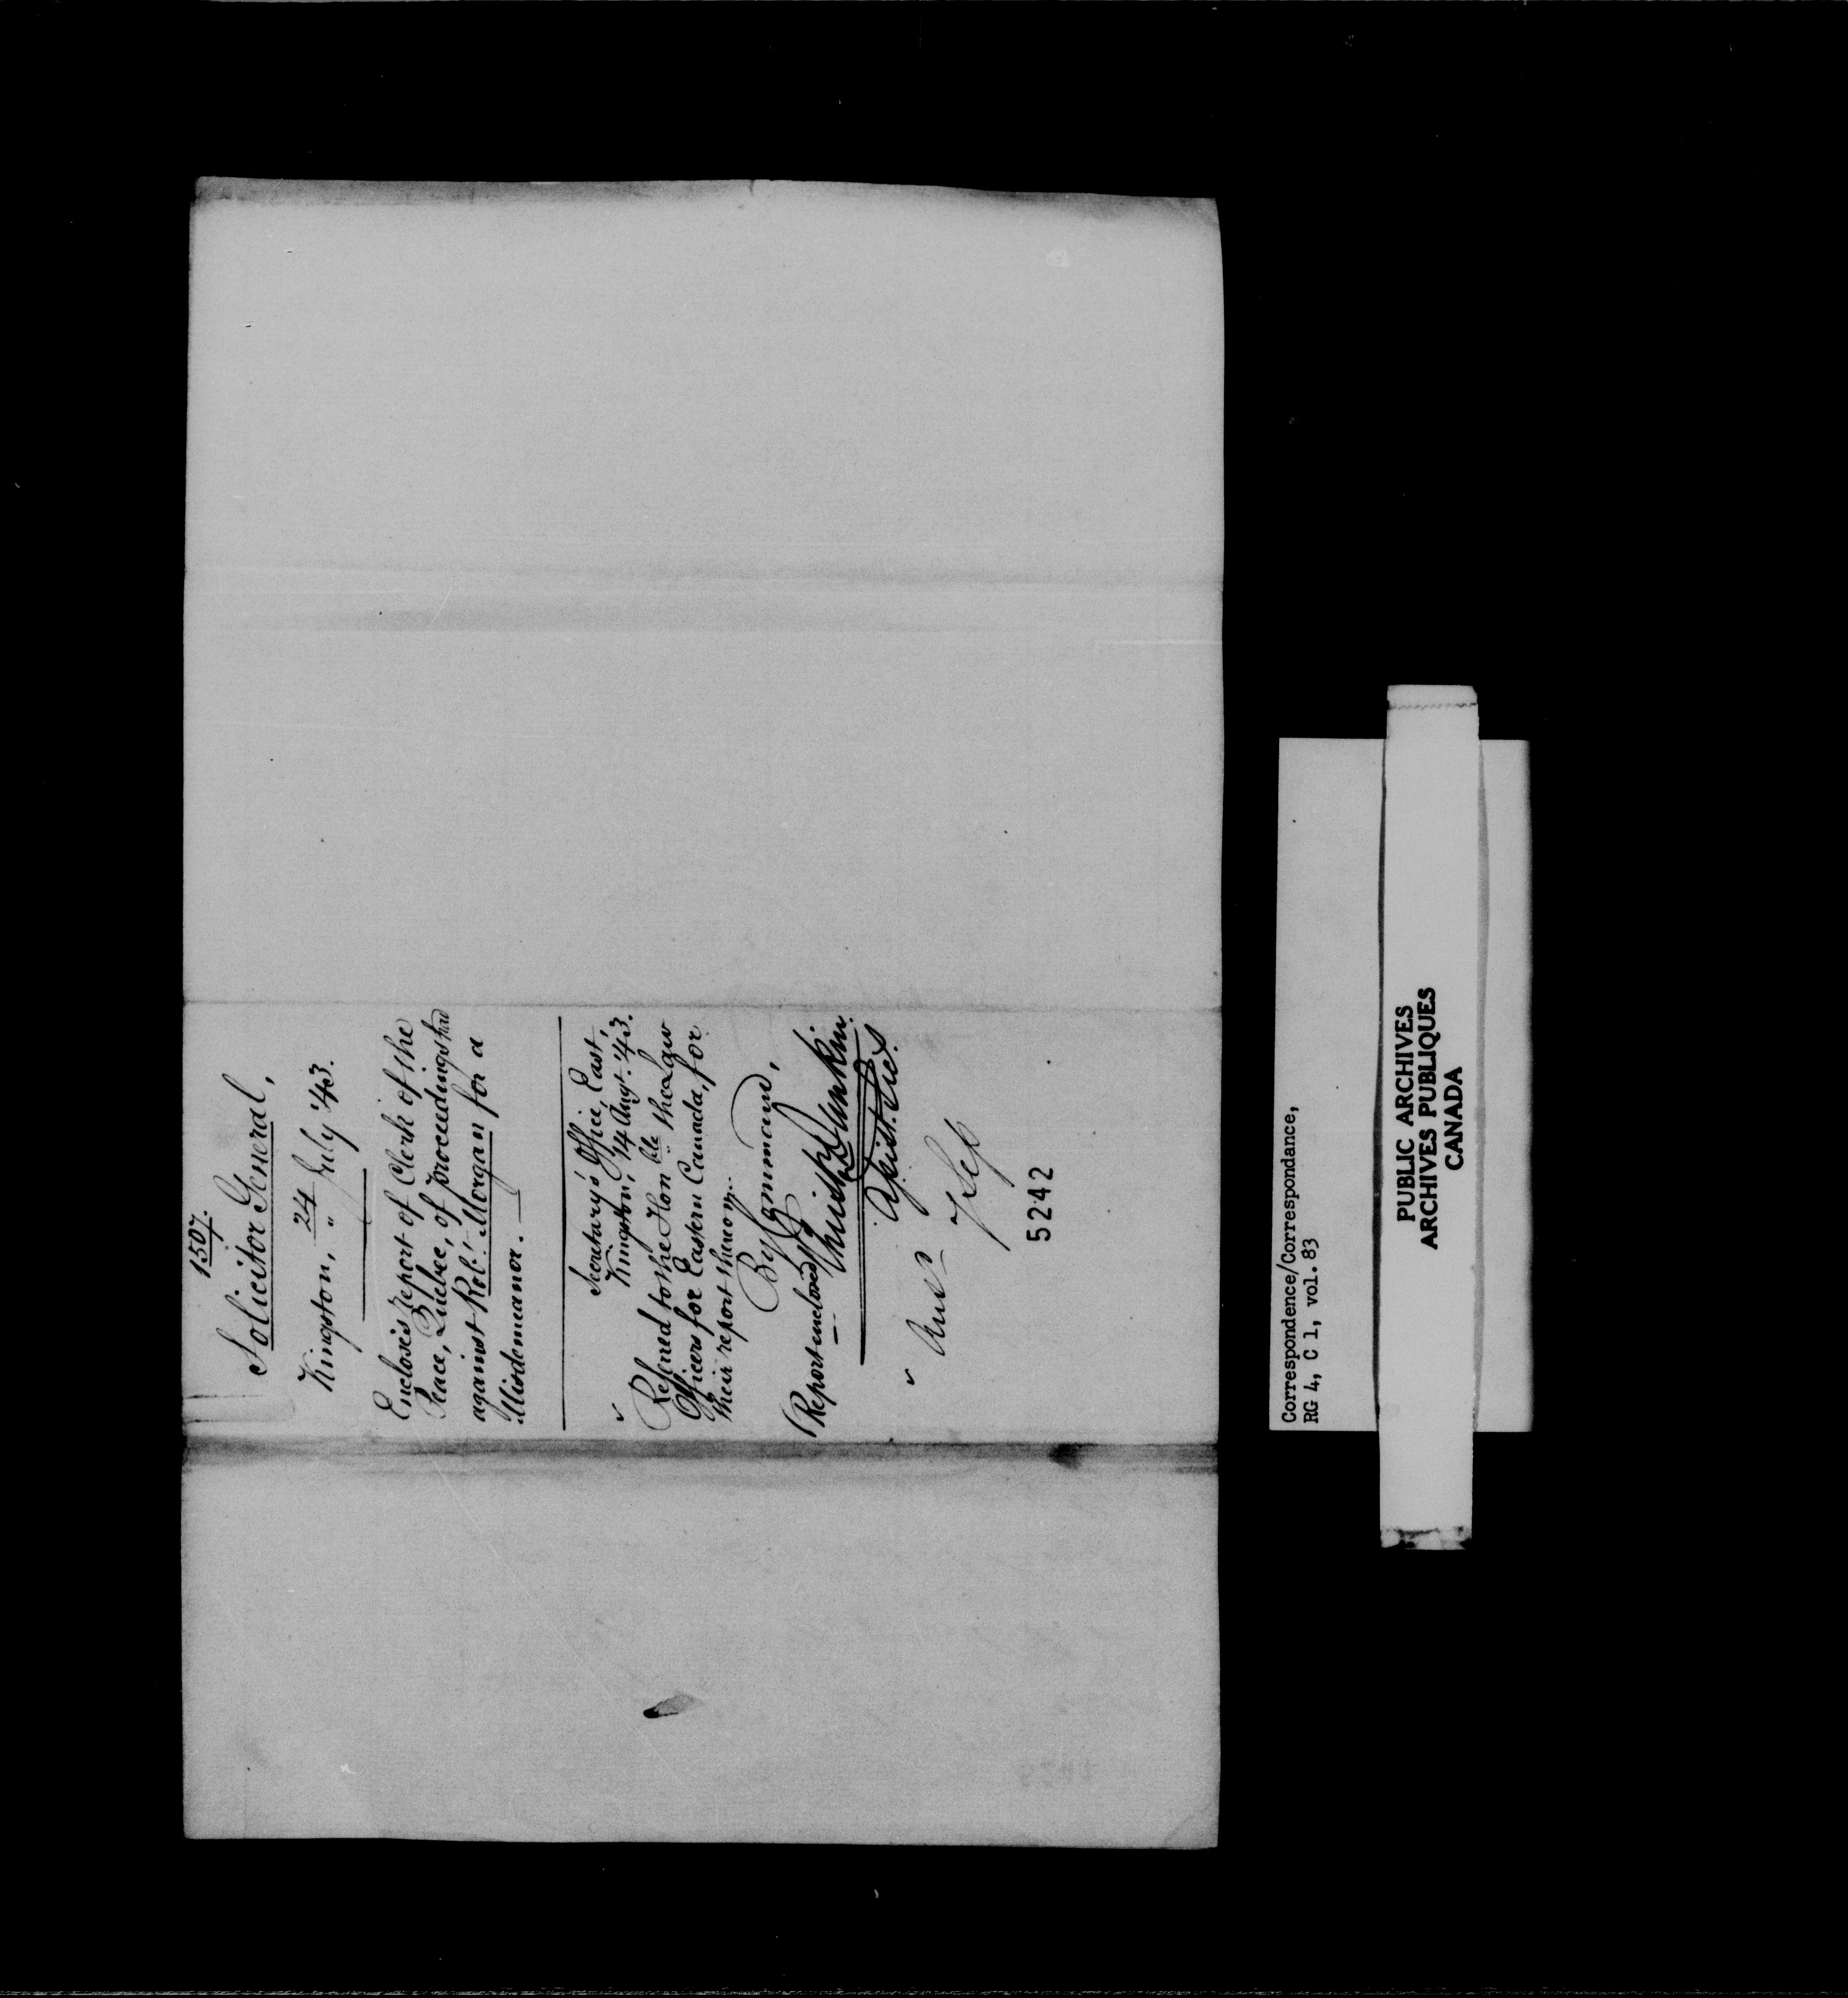 1507.
Solicitor General,
Kingston, 24 July '43.
Encloses report of Clerk of the
Peace, Quebec, of proceedings had
against Robt. Morgan for a
Misdemeanor.
Secretary's Office, East,
Kingston, 14 Augt. '43.
Referred to the Honble the Law
Officers for Eastern Canada, for
their report thereon.
By Command,
(Report enclosed)
Dunkin.
Asist. Sec.
5242
Correspondence/Correspondance,
RG 4, C 1, vol. 83
PUBLIC ARCHIVES
ARCHIVES PUBLIQUES
CANADA